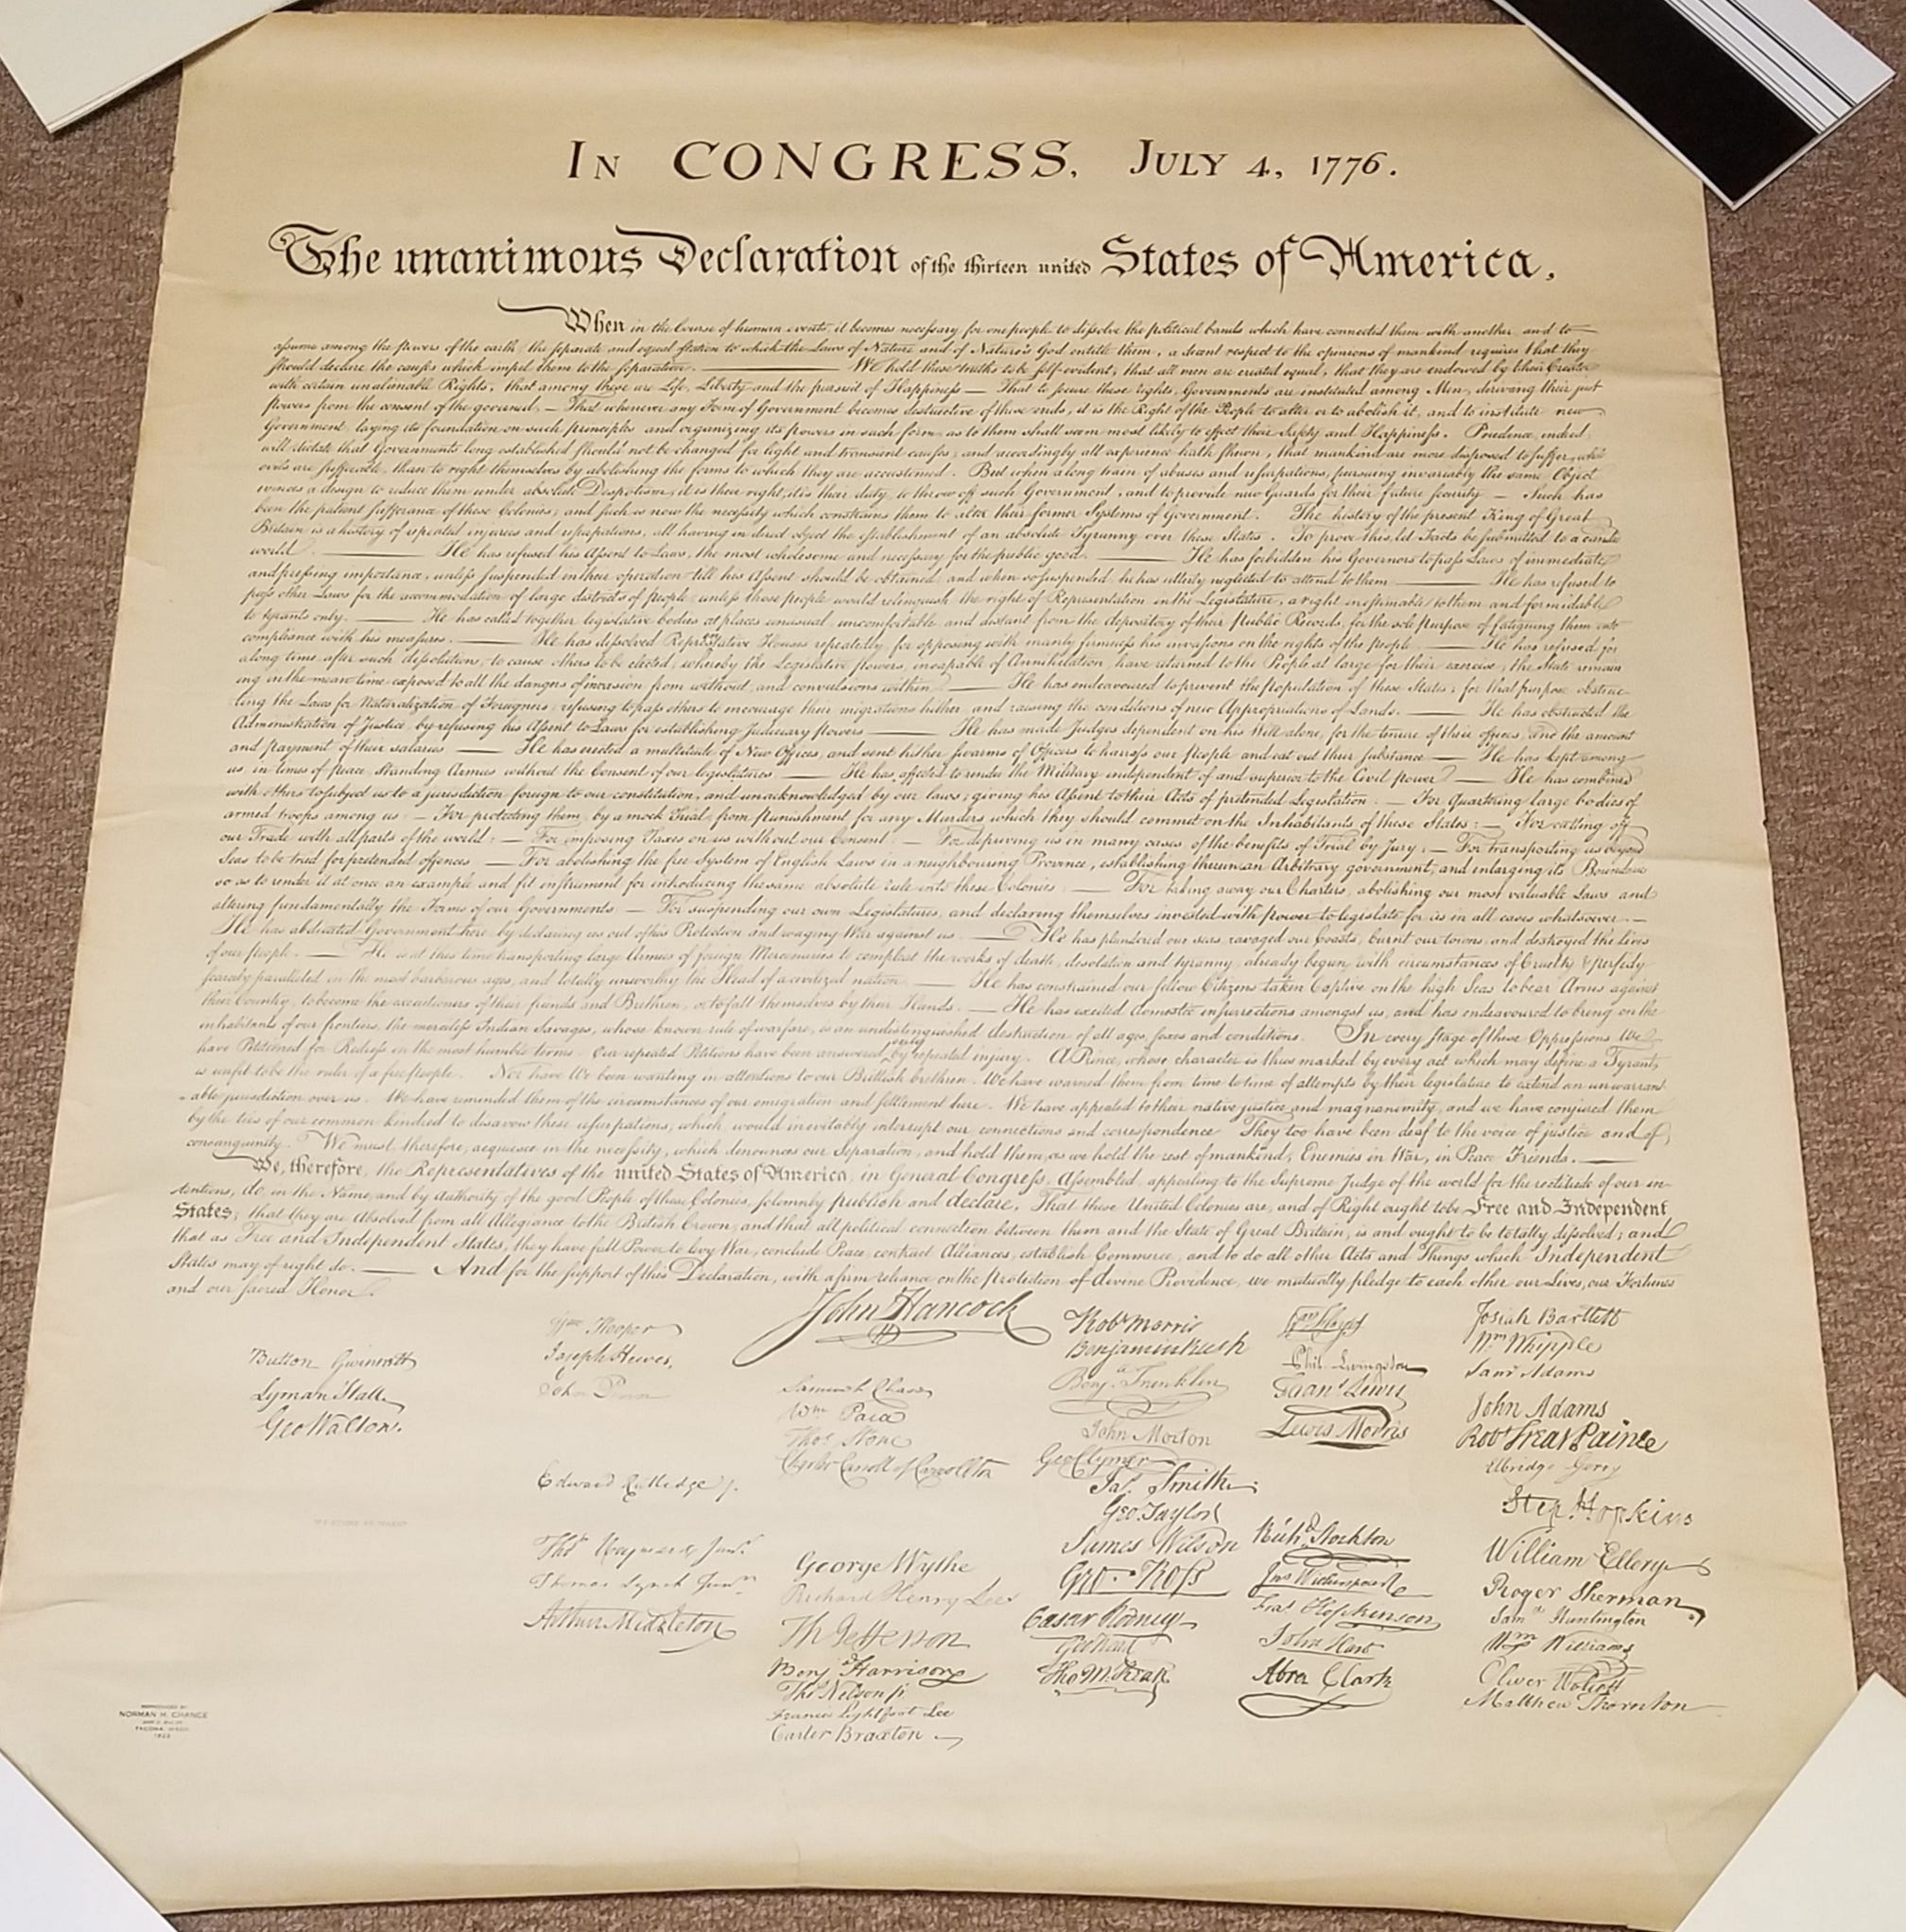 IN CONGRESS, JULY 4, 1776.
The unanimous Declaration of the thirteen united States of America,
When in the Course of human events, it becomes necessary for one people to dissolve the political bands which have connected them with another, and to
assume among the powers of the earth, the separate and equal station to which the Laws of Nature and of Nature's God entitle them, a decent respect to the opinions of mankind requires that they
should declare the causes which impel them to the separation. — We hold these truths to be self-evident, that all men are created equal, that they are endowed by their Creator
with certain unalienable Rights, that among these are Life, Liberty and the pursuit of Happiness — That to secure these rights, Governments are instituted among Men, deriving their just
powers from the consent of the governed, — That whenever any Form of Government becomes destructive of these ends, it is the Right of the People to alter or to abolish it, and to institute new
Government, laying its foundation on such principles and organizing its powers in such form, as to them shall seem most likely to effect their Safety and Happiness. Prudence, indeed,
will dictate that Governments long established should not be changed for light and transient causes; and accordingly all experience hath shewn, that mankind are more disposed to suffer, while
evils are sufferable, than to right themselves by abolishing the forms to which they are accustomed. But when a long train of abuses and usurpations, pursuing invariably the same Object
evinces a design to reduce them under absolute Despotism, it is their right, it is their duty, to throw off such Government, and to provide new Guards for their future security. — Such has
been the patient sufferance of these Colonies; and such is now the necessity which constrains them to alter their former Systems of Government. The history of the present King of Great
Britain is a history of repeated injuries and usurpations, all having in direct object the establishment of an absolute Tyranny over these States. To prove this, let Facts be submitted to a candid
world. — He has refused his Assent to Laws, the most wholesome and necessary for the public good. — He has forbidden his Governors to pass Laws of immediate
and pressing importance, unless suspended in their operation till his Assent should be obtained; and when so suspended, he has utterly neglected to attend to them. — He has refused to
pass other Laws for the accommodation of large districts of people, unless those people would relinquish the right of Representation in the Legislature, a right inestimable to them and formidable
to tyrants only. — He has called together legislative bodies at places unusual, uncomfortable, and distant from the depository of their Public Records, for the sole purpose of fatiguing them into
compliance with his measures. — He has dissolved Representative Houses repeatedly, for opposing with manly firmness his invasions on the rights of the people. — He has refused for
a long time, after such dissolutions, to cause others to be elected; whereby the Legislative powers, incapable of Annihilation, have returned to the People at large for their exercise; the State remain
ing in the mean time exposed to all the dangers of invasion from without, and convulsions within. — He has endeavoured to prevent the population of these States; for that purpose obstruc-
ting the Laws for Naturalization of Foreigners; refusing to pass others to encourage their migrations hither, and raising the conditions of new Appropriations of Lands. — He has obstructed the
Administration of Justice, by refusing his Assent to Laws for establishing Judiciary powers. — He has made Judges dependent on his Will alone, for the tenure of their offices, and the amount
and payment of their salaries. — He has erected a multitude of New Offices, and sent hither swarms of Officers to harrass our people, and eat out their substance. — He has kept among
us, in times of peace, Standing Armies without the Consent of our legislatures. — He has affected to render the Military independent of and superior to the Civil power. — He has combined
with others to subject us to a jurisdiction foreign to our constitution, and unacknowledged by our laws; giving his Assent to their Acts of pretended Legislation: — For Quartering large bodies of
armed troops among us: — For protecting them, by a mock Trial, from punishment for any Murders which they should commit on the Inhabitants of these States: — For cutting off
our Trade with all parts of the world: — For imposing Taxes on us without our Consent: — For depriving us in many cases, of the benefits of Trial by Jury: — For transporting us beyond
Seas to be tried for pretended offences — For abolishing the free System of English Laws in a neighbouring Province, establishing therein an Arbitrary government, and enlarging its Boundaries
so as to render it at once an example and fit instrument for introducing the same absolute rule into these Colonies: — For taking away our Charters, abolishing our most valuable Laws, and
altering fundamentally the Forms of our Governments: — For suspending our own Legislatures, and declaring themselves invested with power to legislate for us in all cases whatsoever. —
He has abdicated Government here, by declaring us out of his Protection and waging War against us. — He has plundered our seas, ravaged our Coasts, burnt our towns, and destroyed the lives
of our people. — He is at this time transporting large Armies of foreign Mercenaries to compleat the works of death, desolation and tyranny, already begun with circumstances of Cruelty & perfidy
scarcely paralleled in the most barbarous ages, and totally unworthy the Head of a civilized nation. — He has constrained our fellow Citizens taken Captive on the high Seas to bear Arms against
their Country, to become the executioners of their friends and Brethren, or to fall themselves by their Hands. — He has excited domestic insurrections amongst us, and has endeavoured to bring on the
inhabitants of our frontiers, the merciless Indian Savages, whose known rule of warfare, is an undistinguished destruction of all ages, sexes and conditions. In every stage of these Oppressions We
have Petitioned for Redress in the most humble terms: Our repeated Petitions have been answered only by repeated injury. A Prince, whose character is thus marked by every act which may define a Tyrant,
is unfit to be the ruler of a free people. Nor have We been wanting in attentions to our Brittish brethren. We have warned them from time to time of attempts by their legislature to extend an unwarrant
-able jurisdiction over us. We have reminded them of the circumstances of our emigration and settlement here. We have appealed to their native justice and magnanimity, and we have conjured them
by the ties of our common kindred to disavow these usurpations, which would inevitably interrupt our connections and correspondence. They too have been deaf to the voice of justice and of
consanguinity. We must, therefore, acquiesce in the necessity, which denounces our Separation, and hold them, as we hold the rest of mankind, Enemies in War, in Peace Friends. —
We, therefore, the Representatives of the united States of America, in General Congress, Assembled, appealing to the Supreme Judge of the world for the rectitude of our in-
tentions, do, in the Name, and by Authority of the good People of these Colonies, solemnly publish and declare, That these United Colonies are, and of Right ought to be Free and Independent
States; that they are Absolved from all Allegiance to the British Crown, and that all political connection between them and the State of Great Britain, is and ought to be totally dissolved; and
that as Free and Independent States, they have full Power to levy War, conclude Peace, contract Alliances, establish Commerce, and to do all other Acts and Things which Independent
States may of right do. — And for the support of this Declaration, with a firm reliance on the protection of divine Providence, we mutually pledge to each other our Lives, our Fortunes
and our sacred Honor.
Button Gwinnett
Lyman Hall
Geo Walton.
Wm Hooper
Joseph Hewes,
John Penn
Edward Rutledge
Thos Heyward Junr.
Thomas Lynch Junr.
Arthur Middleton
John Hancock
Samuel Chase
Wm Paca
Thos Stone
Charles Carroll of Carrollton
George Wythe
Richard Henry Lee
Th Jefferson
Benj Harrison
Thos Nelson jr
Francis Lightfoot Lee
Carter Braxton
Robt Morris
Benjamin Rush
Benj. Franklin
John Morton
Geo Clymer
Jas. Smith
Geo. Taylor
James Wilson
Geo. Ross
Caesar Rodney
Geo Read
Tho M:Kean
Wm Floyd
Phil. Livingston
Frans. Lewis
Lewis Morris
Richd. Stockton
Jno Witherspoon
Fras. Hopkinson
John Hart
Abra Clark
Josiah Bartlett
Wm Whipple
Saml Adams
John Adams
Robt Treat Paine
Elbridge Gerry
Step. Hopkins
William Ellery
Roger Sherman
Saml Huntington
Wm Williams
Oliver Wolcott
Matthew Thornton
REPRODUCED BY
NORMAN H. CHANCE
TACOMA, WASH.